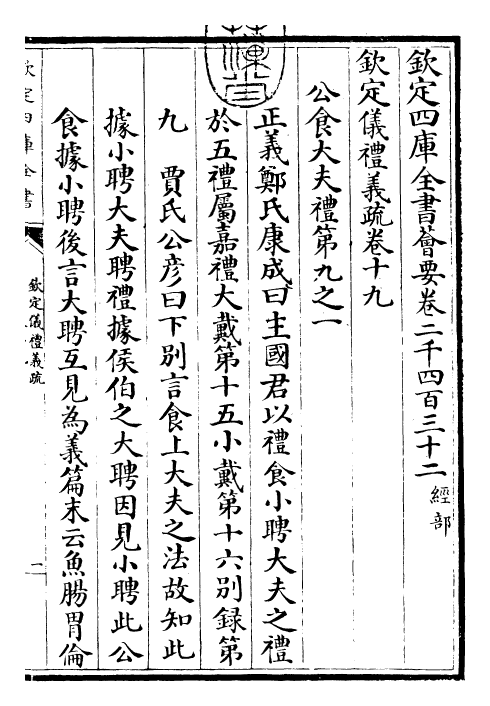 欽定四庫全書薈要卷二千四百三十二 經部
欽定儀禮義疏卷十九
公食大夫禮第九之一
正義鄭氏康成曰主國君以禮食小聘大夫之禮
於五禮屬嘉禮大戴第十五小戴第十六別録第
九 賈氏公彦曰下別言食上大夫之法故知此
據小聘大夫聘禮據侯伯之大聘因見小聘此公
食據小聘後言大聘互見為義篇末云魚腸胃倫
欽定四庫全書
欽定儀禮義疏
一